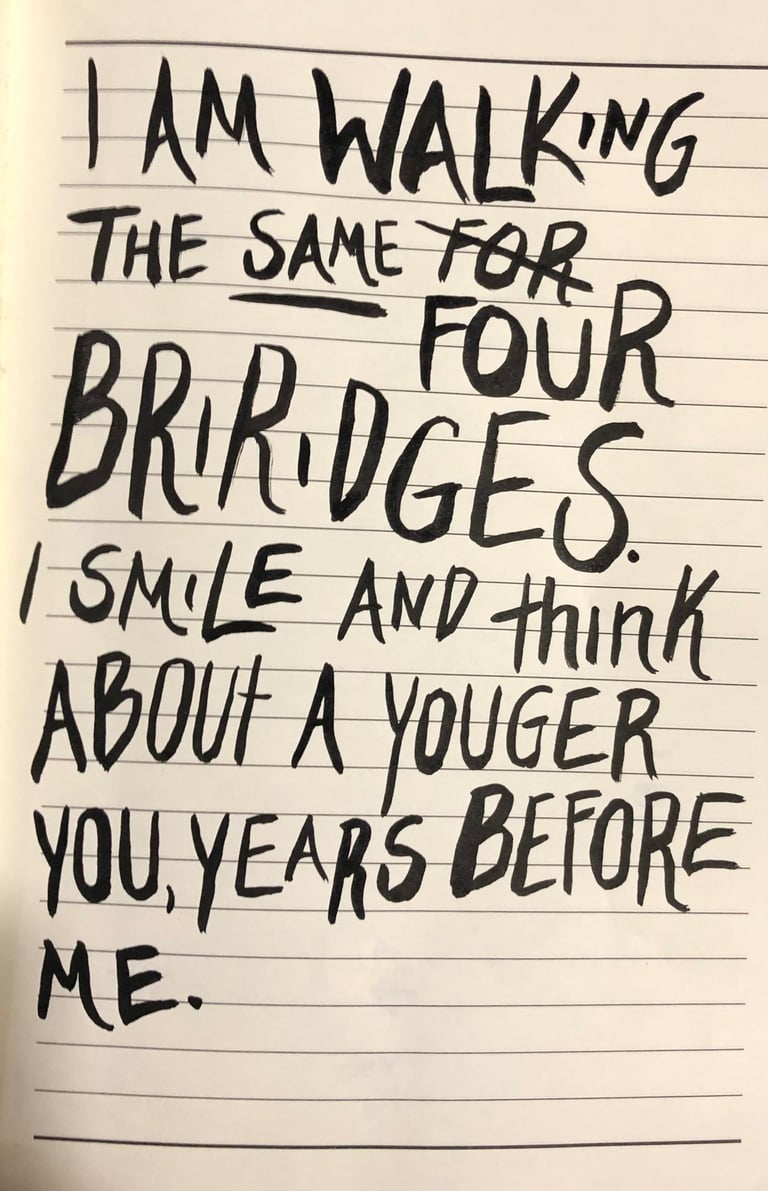 I AM WALKING
THE SAME FOR
FOUR
BRIRIDGES.
I SMILE AND think
ABOUt A YOUGER
YOU, YEARS BEFORE
ME.